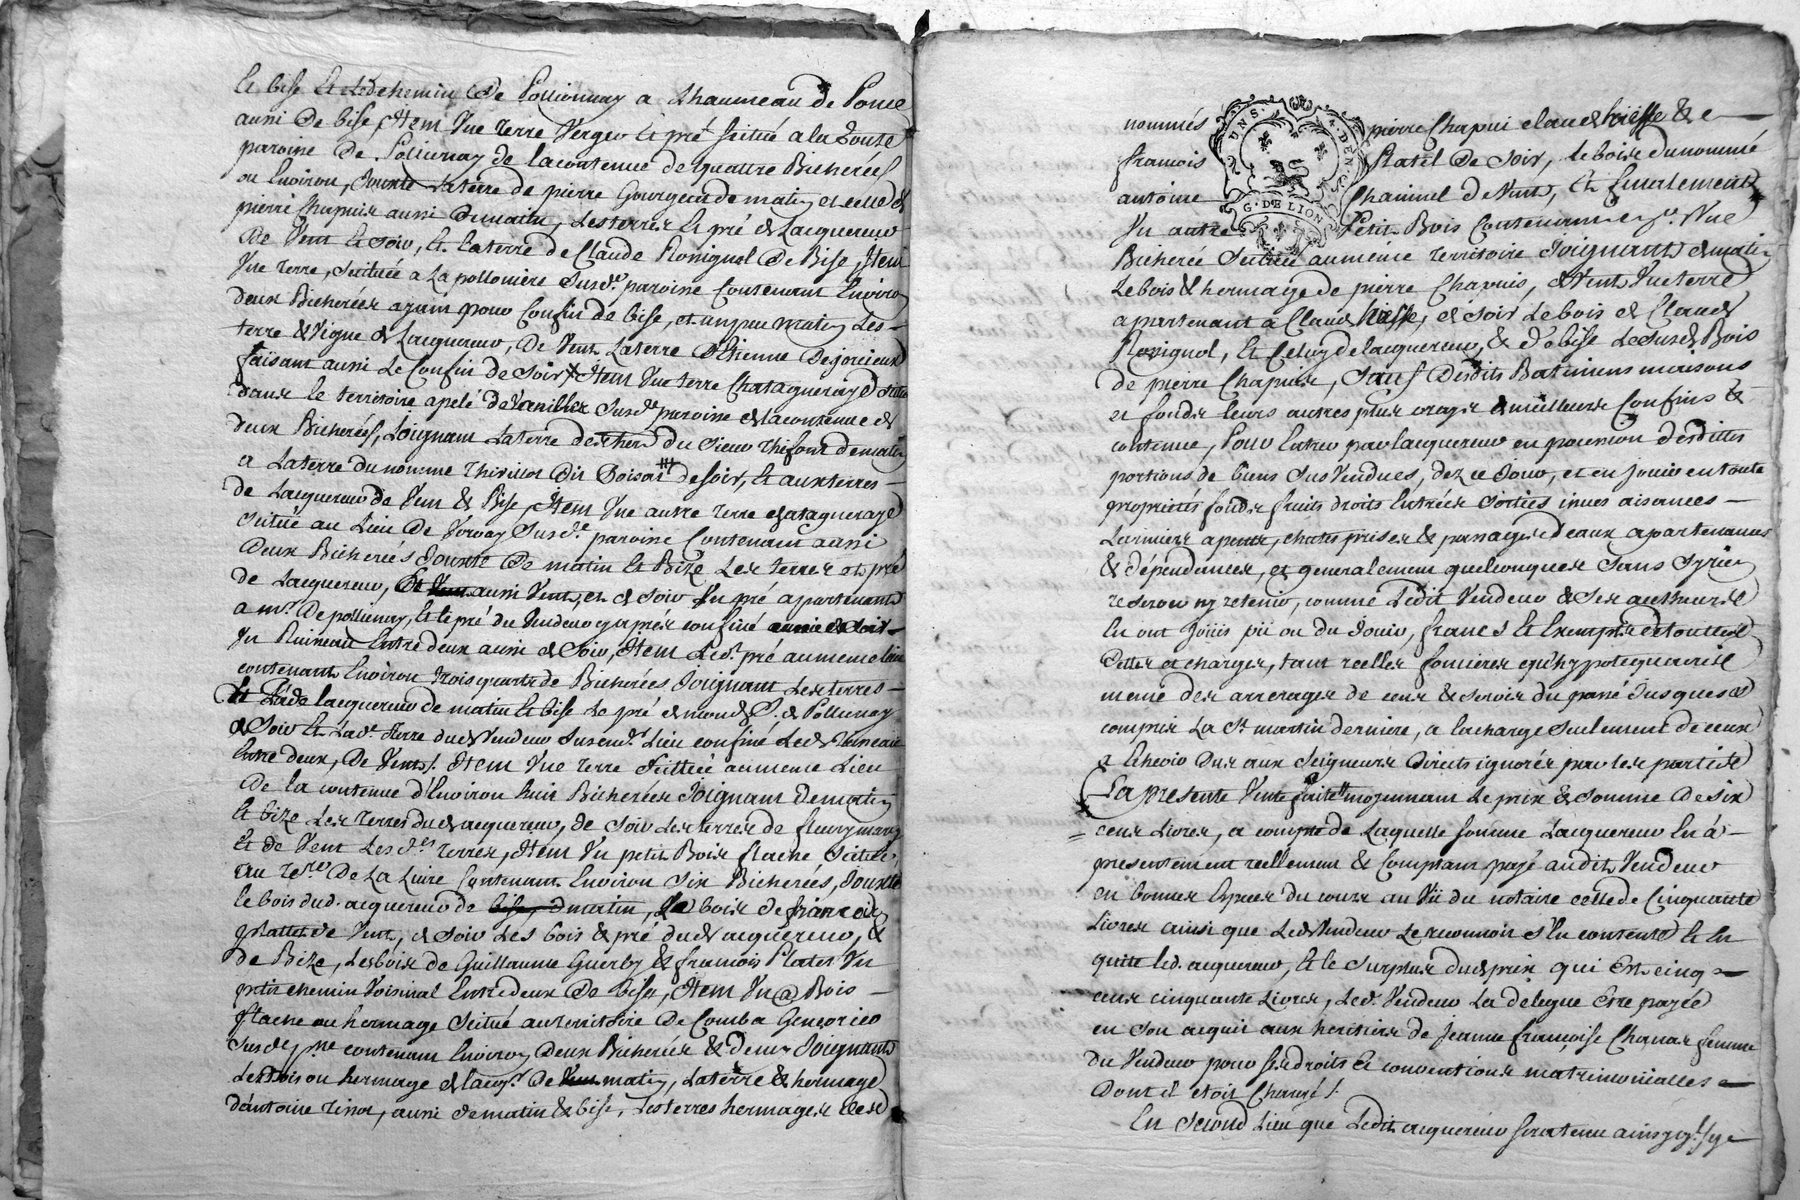 Et bise Et Led chemin De Pollionnay a Lhaumeau de Ponce
aussi De bise, Item Vne terre Verger Et pré scitué a la Zonte
paroisse De Pollionay de la contenue de quattre Bicherées
ou Environ, Jouxte La terre de pierre Gourgeau de matin et celle de
pierre Chapuis aussi de matin, Les terres Et pré de Lacquereur
De Vent Et soir, Et La terre de Claude Rosignol De Bise, Item
Vne terre, scituée a La pollonière susde. paroisse Contenant Environ
deux Bicherées ayant pour Confin de bise, et un peu matin Les
terre & Vigne de Lacquereur, De Vent La terre d'Etienne Dejorieux
faisant aussi Le Confin de soir, Item Vne terre Chataguerays
dans le territoire apelé de Susde paroisse de la contenue de
deux Bicherées, Joignant La terre des hers du sieur de matin
et La terre du nommé Thivillor dit de soir, Et aux terres
de Lacquereur de Vent & Bise, Item Vne autre terre chatagueraye
scitué au Lieu De Susde. paroisse Contenant aussi
deux Bicherées Jouxte De matin Et Bize Les terres et pré
de Lacquereur, De aussi Vent, et de soir Le pré apartenant
a mr. De pollionay, Et le pré du Vendeur cy après confiné
Un Ruisseau Entre deux aussi de soir, Item Led. pré au meme lieu
contenant Environ trois quarts de Bicherées Joignant Les terres
lacquereur de matin Et bise Le pré de mond S. de Pollionay
de soir Et Lade. terre dud Vendeur susend. Lieu confiné Led Ruisseau
Entre deux, De Vent /. Item Vne terre scituée au meme Lieu
De la contenue d'Environ huit Bicherées Joignant De matin
Et bize Les terres dud acquereur, de soir Les terres de fleury
Et de Vent Les des. terres, Item Un petit Bois flache scitué
au tere. De La Luire Contenant Environ six Bicherées, Jouxte
le bois dud. acquereur de matin, Le bois de francois
platet de Vent, de soir Les bois & pré dud acquereur, &
de Bize, Les bois de Guillaume Guerby & francois Platet Un
petit chemin Voisinal Entre deux De bise, Item Un Bois
flache ou hermage scitué au territoire De Comba
susde pne contenant Environ deux Bicherées & demy Joignant
Les bois ou hermage de lacqr. De matin, La terre & hermage
d'antoine, aussi de matin & bise, Les terres hermages des
nommés pierre Chapui claude & e
francois Platel De soir, le bois du nommé
antoine Chaninel de Vent, Et finalement
Un autre Petit Bois Contenant Environ Vne
Bicherée scituée au même territoire Joignant de matin
Le bois & hermage de pierre Chapuis, de Vent Vne terre
apartenant a Claude, de soir Le bois de Claude
Rosignol, Et Celuy de lacquereur, & de bise Le susd Bois
de pierre Chapuis, Sauf Desdits Batimens maisons
et fonds leurs autres plus vrays & meilleurs Confins &
contenue, Pour Entrer par lacquereur en possession desdittes
portions de biens susVendues, dez ce Jour, et en jouir en toute
propriétés fonds fruits droits Entrées sorties issues aisances
Larmiers apents, chutes prises & passages d'eaux apartenances
& dépendances, et generalement quelconques sans s'y rien
reserver ny retenir, comme Ledit Vendeur & ses autheurs
En ont Jouis pû ou du Jouir, francs Et Exempts de touttes
dettes et charges, tant reelles foncières qu'hypotequaires
même des arrerages de cens & servis du passé Jusques et
compris La St. martin derniere, a la charge seulement de ceux
a Echevoir Dus aux seigneurs Directs ignorés par les parties
La presente Vente faite moyennant Le prix & somme De six
cens Livres, a compte de Laquelle somme Lacquereur En a
presentement reellement & Comptant payé audit Vendeur
en bonnes Especes du cours au Vû du notaire celle de Cinquante
Livres ainsi que Led Vendeur Le reconnoit s'En contente Et En
quite led. acquereur, Et le surplus dud prix qui Est cinq
cens cinquante Livres, Led. Vendeur La delegue Etre payée
en son acquit aux héritiers de Jeanne françoise Chanas femme
du Vendeur pour ses droits Et conventions matrimonialles
Dont il etoit Chargé /.
En second Lieu que Ledit acquereur sera tenu ainsy qu'il s'y
UNS. A. DEN
G. DE LION